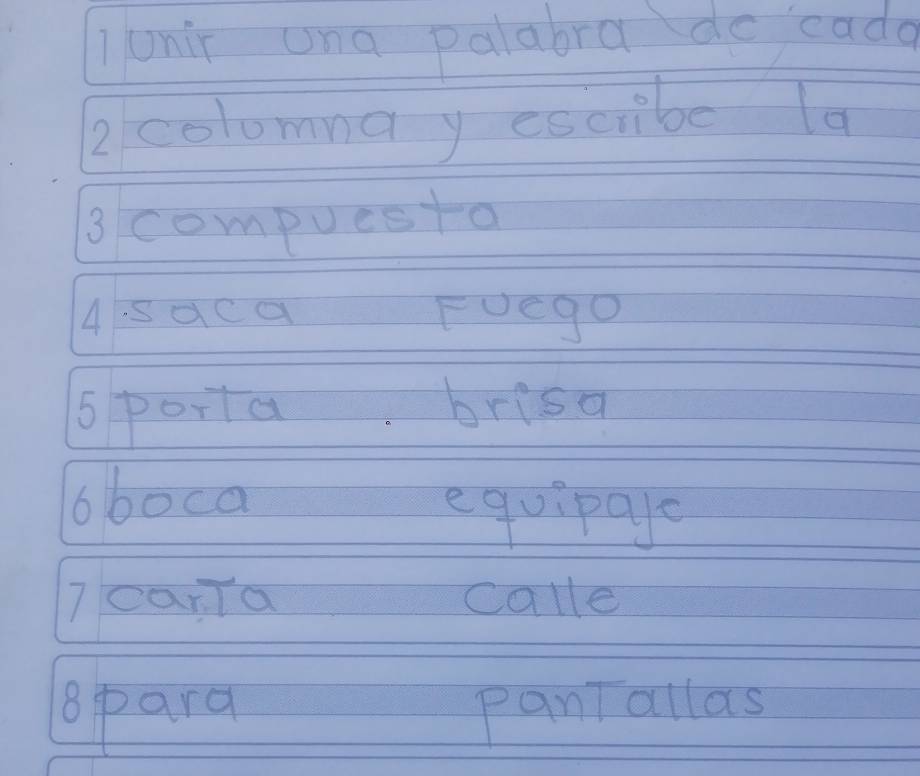 1 Unir una palabra de cada
2 columna y escribe la
3 compuesta
4 saca Fuego
5 porta brisa
6 boca equipaje
7 carta calle
8 para pantallas